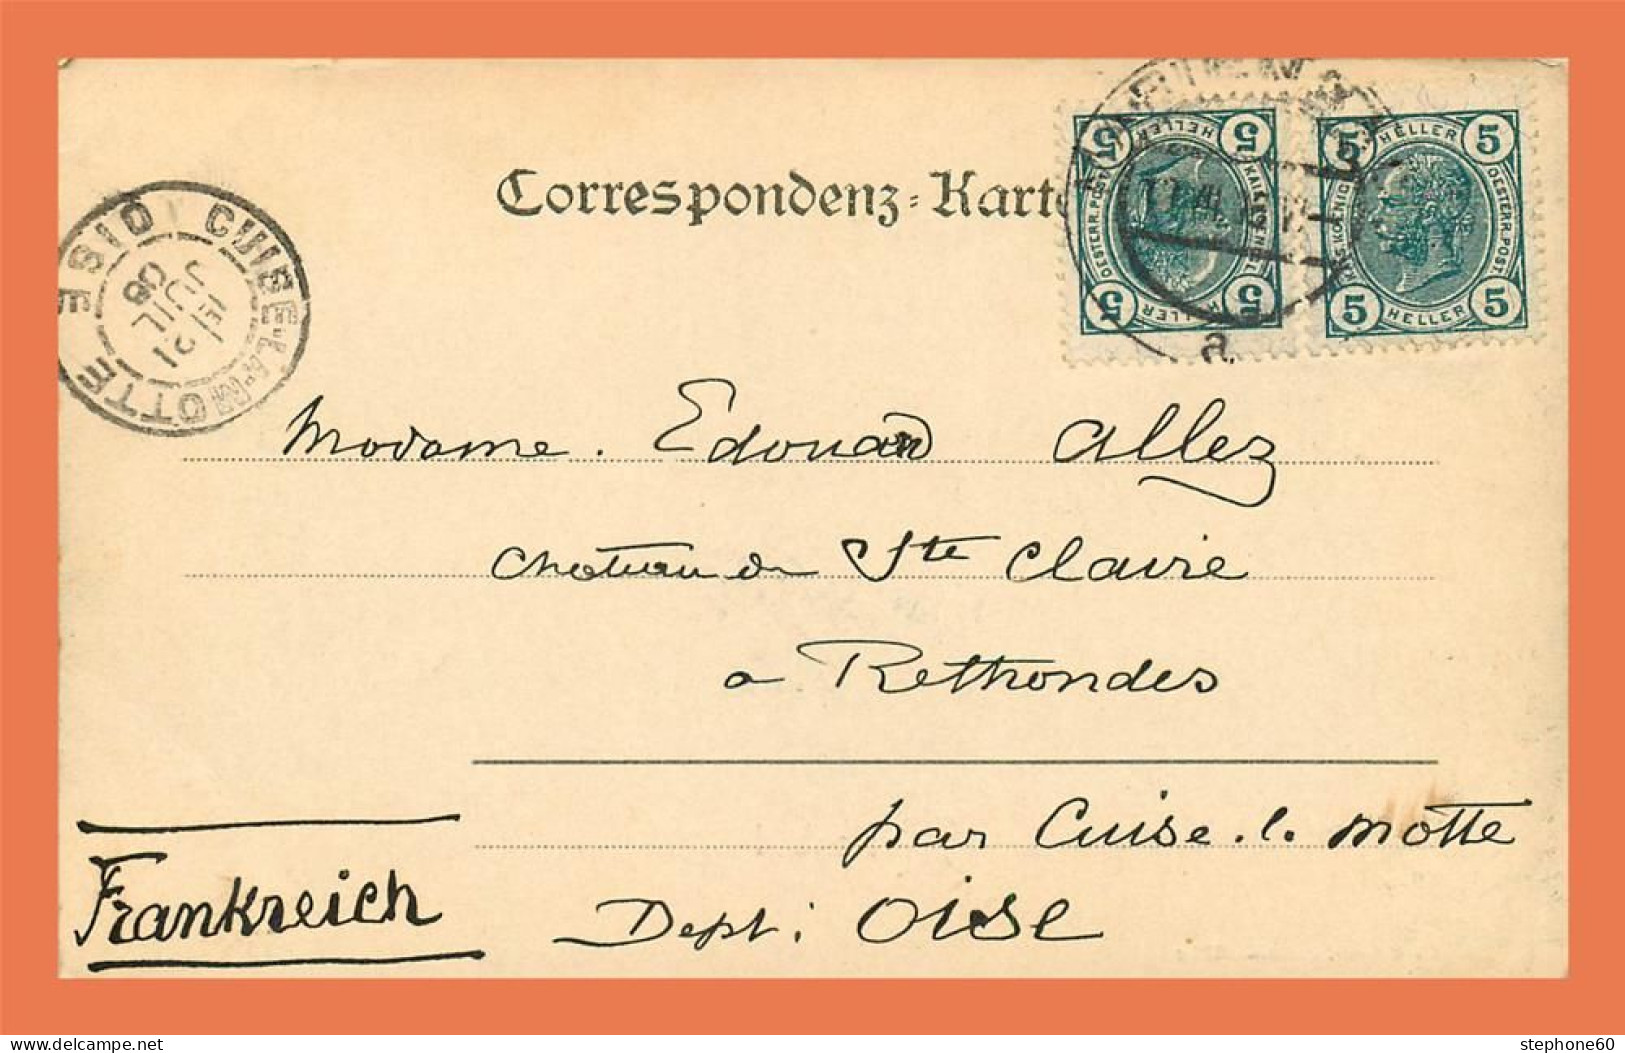 Correspondenz-Karte
5 HELLER 5
5 HELLER 5
OESTERR.POST.
5 HELLER 5
5 HELLER 5
OESTERR.POST.
a.
CUISE-LA-MOTTE
OISE
21
JUIL
08
Madame. Edouard Allez
Chateau de Ste Claire
a Rethondes
par Cuise. la Motte
Dept: OISE
Frankreich
delcampe.net
stephone60